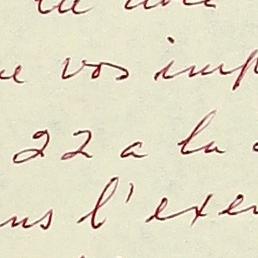 vos imp
22 a la
ns l'exer